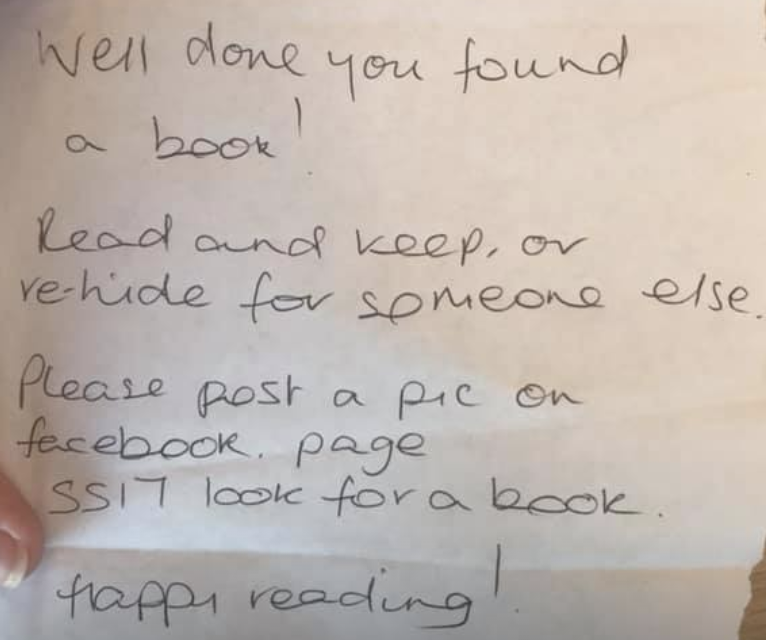 Well done you found
a book!
Read and keep, or
re-hide for someone else.
Please post a pic on
facebook. page
SS17 look for a book.
Happy reading!